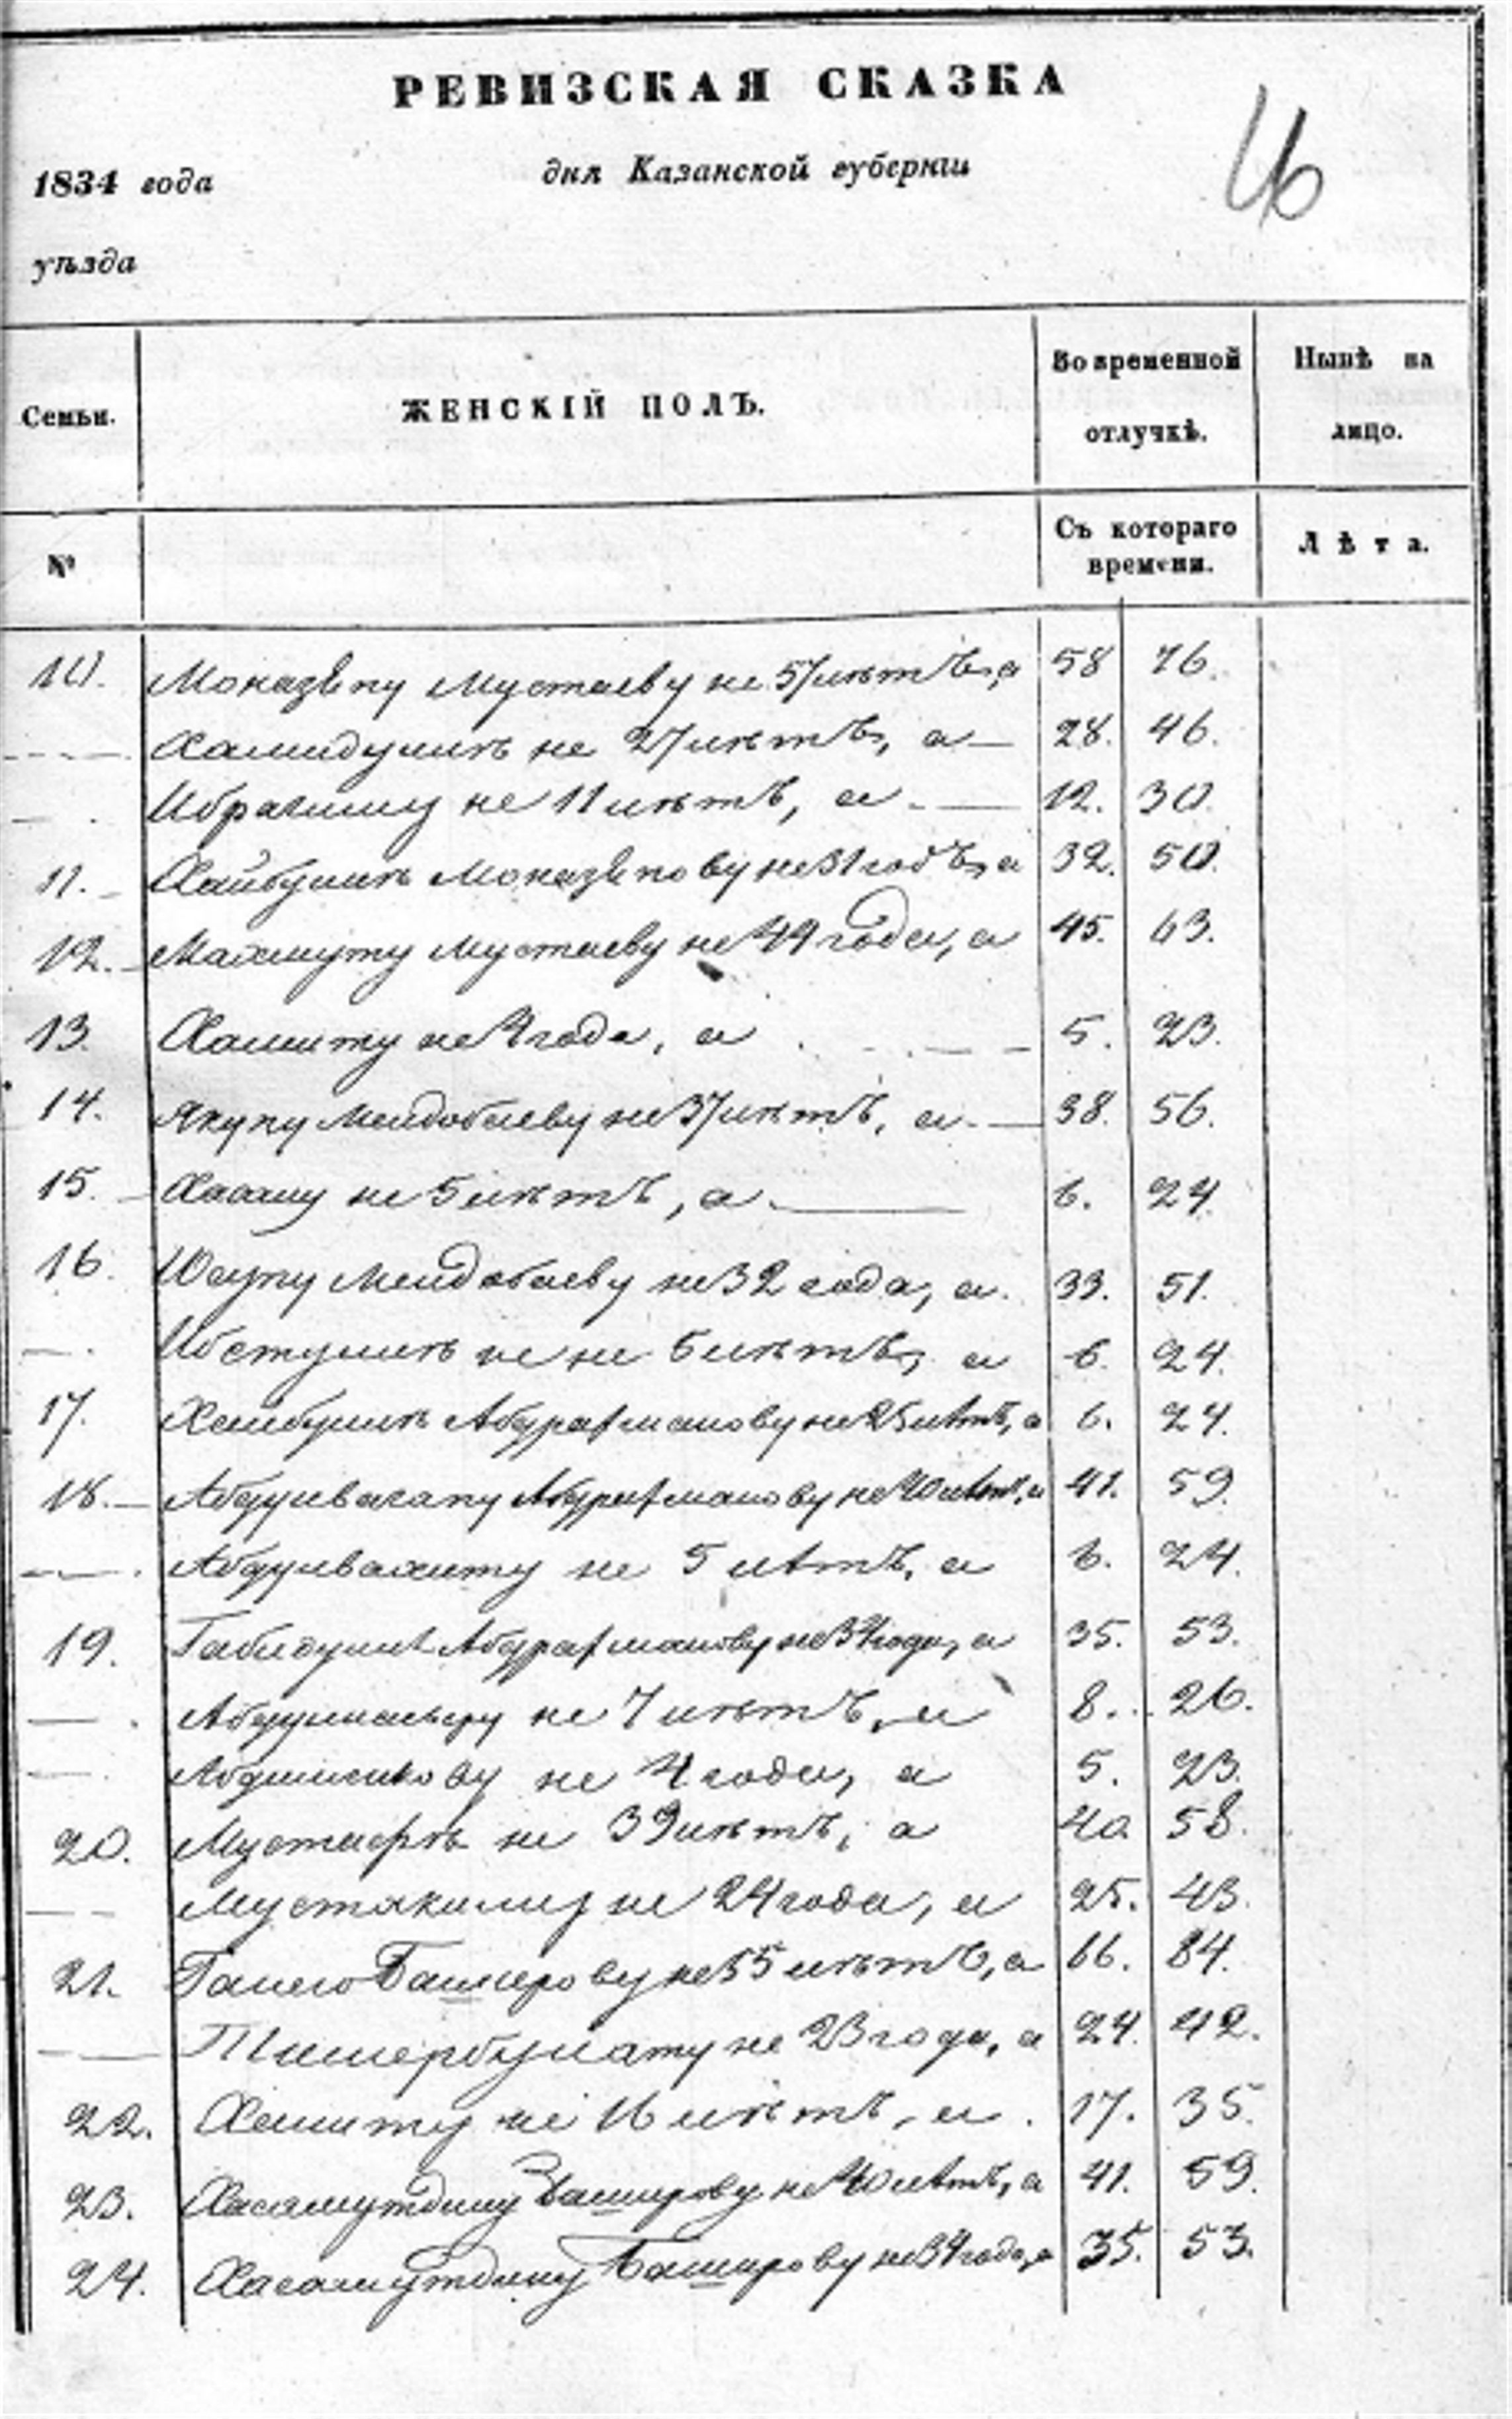 РЕВИЗСКАЯ СКАЗКА
46
1834 года дня Казанской губерніи
уѣзда
Семьи. ЖЕНСКІЙ ПОЛЪ. Во временной отлучкѣ. Нынѣ на лицо.
№ Съ котораго времени. Лѣта.
10. Моназыпу Мустаеву не 57 лѣтъ, а 58 76.
Хамидуллѣ не 27 лѣтъ, а 28. 46.
Ибрагиму не 11 лѣтъ, а 12. 30.
11. Хайбуллѣ Моназыпову не 31 годъ, а 32. 50.
12. Махмуту Мустаеву не 44 года, а 45. 63.
13. Хамиту не 4 года, а 5. 23.
14. Якупу Мендобаеву не 37 лѣтъ, а 38. 56.
15. Хасану не 5 лѣтъ, а 6. 24.
16. Юсупу Мендобаеву не 32 года, а 33. 51.
не 5 лѣтъ, а 6. 24.
17. Хайбуллѣ Абдрахманову не 25 лѣтъ, а 6. 24.
18. Абдулвагапу Абдрахманову не 40 лѣтъ, а 41. 59.
Абдулвахиту не 5 лѣтъ, а 6. 24.
19. Габидуллѣ Абдрахманову не 34 года, а 35. 53.
не 7 лѣтъ, а 8. 26.
не 4 года, а 5. 23.
20. Мустафѣ не 39 лѣтъ, а 40. 58.
Мустякиму не 24 года, а 25. 43.
21. Башерову не 55 лѣтъ, а 66. 84.
Тимербулату не 23 года, а 24. 42.
22. Хамиту не 16 лѣтъ, а 17. 35.
23. Хасамутдину Баширову не 40 лѣтъ, а 41. 59.
24. Хасамутдину Баширову не 34 года, а 35. 53.